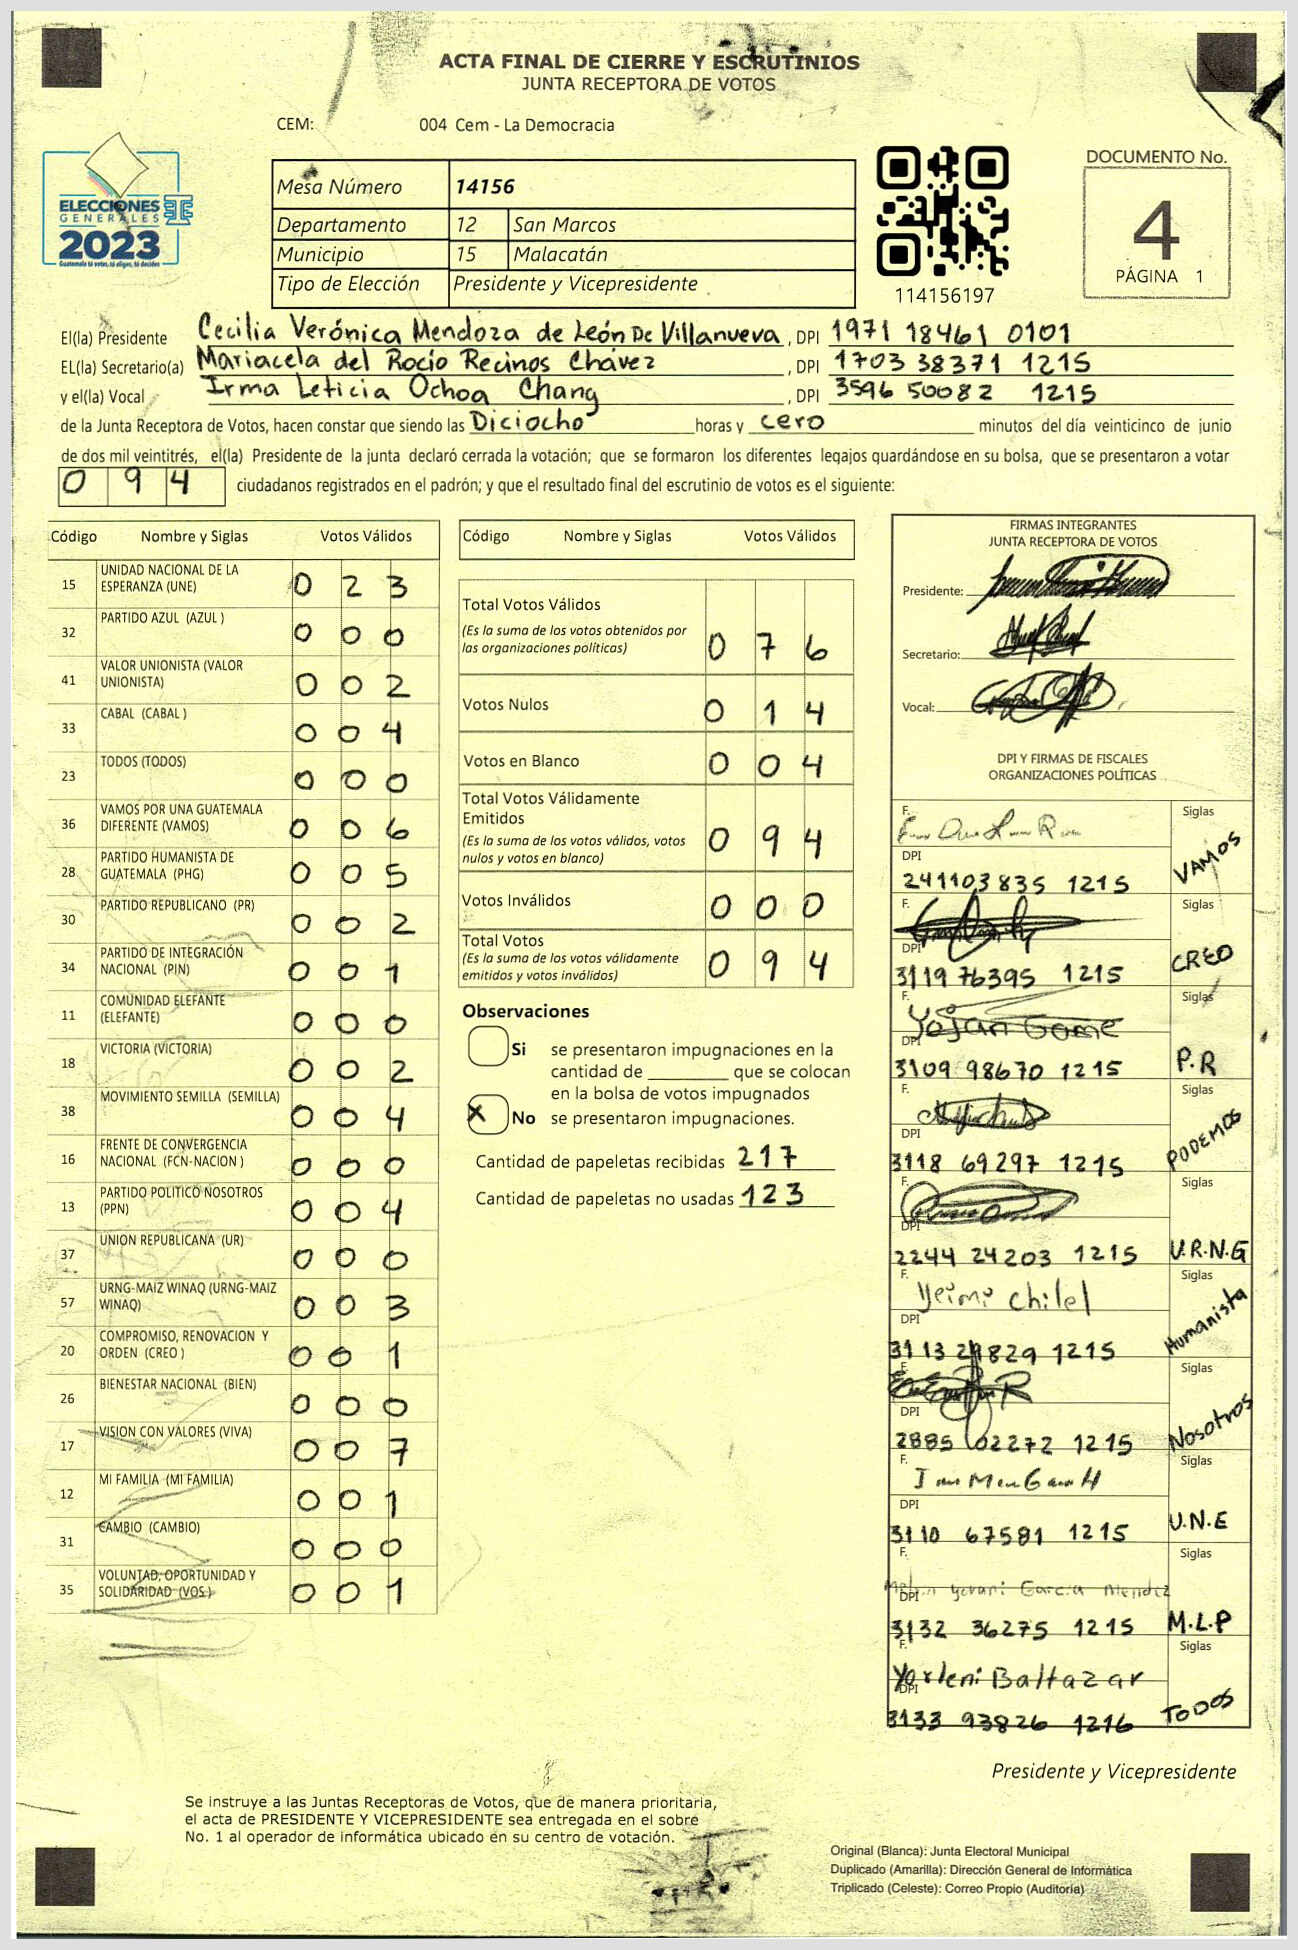 ACTA FINAL DE CIERRE Y ESCRUTINIOS
JUNTA RECEPTORA DE VOTOS
CEM: 004 Cem - La Democracia
ELECCIONES
GENERALES
2023
Guatemala tú votas, tú eliges, tú decides
Mesa Número 14156
Departamento 12 San Marcos
Municipio 15 Malacatán
Tipo de Elección Presidente y Vicepresidente
114156197
DOCUMENTO No.
4
PÁGINA 1
El(la) Presidente Cecilia Verónica Mendoza de León De Villanueva, DPI 1971 18461 0101
EL(la) Secretario(a) Mariacela del Rocío Recinos Chávez, DPI 1703 38371 1215
y el(la) Vocal Irma Leticia Ochoa Chang, DPI 3596 50082 1215
de la Junta Receptora de Votos, hacen constar que siendo las Diciocho horas y cero minutos del día veinticinco de junio
de dos mil veintitrés, el(la) Presidente de la junta declaró cerrada la votación; que se formaron los diferentes legajos guardándose en su bolsa, que se presentaron a votar
0 9 4 ciudadanos registrados en el padrón; y que el resultado final del escrutinio de votos es el siguiente:
Código Nombre y Siglas Votos Válidos
15 UNIDAD NACIONAL DE LA ESPERANZA (UNE) 0 2 3
32 PARTIDO AZUL (AZUL ) 0 0 0
41 VALOR UNIONISTA (VALOR UNIONISTA) 0 0 2
33 CABAL (CABAL ) 0 0 4
23 TODOS (TODOS) 0 0 0
36 VAMOS POR UNA GUATEMALA DIFERENTE (VAMOS) 0 0 6
28 PARTIDO HUMANISTA DE GUATEMALA (PHG) 0 0 5
30 PARTIDO REPUBLICANO (PR) 0 0 2
34 PARTIDO DE INTEGRACIÓN NACIONAL (PIN) 0 0 1
11 COMUNIDAD ELEFANTE (ELEFANTE) 0 0 0
18 VICTORIA (VICTORIA) 0 0 2
38 MOVIMIENTO SEMILLA (SEMILLA) 0 0 4
16 FRENTE DE CONVERGENCIA NACIONAL (FCN-NACION ) 0 0 0
13 PARTIDO POLITICO NOSOTROS (PPN) 0 0 4
37 UNION REPUBLICANA (UR) 0 0 0
57 URNG-MAIZ WINAQ (URNG-MAIZ WINAQ) 0 0 3
20 COMPROMISO, RENOVACION Y ORDEN (CREO ) 0 0 1
26 BIENESTAR NACIONAL (BIEN) 0 0 0
17 VISION CON VALORES (VIVA) 0 0 7
12 MI FAMILIA (MI FAMILIA) 0 0 1
31 CAMBIO (CAMBIO) 0 0 0
35 VOLUNTAD, OPORTUNIDAD Y SOLIDARIDAD (VOS ) 0 0 1
Código Nombre y Siglas Votos Válidos
Total Votos Válidos
(Es la suma de los votos obtenidos por
las organizaciones políticas) 0 7 6
Votos Nulos 0 1 4
Votos en Blanco 0 0 4
Total Votos Válidamente
Emitidos
(Es la suma de los votos válidos, votos
nulos y votos en blanco) 0 9 4
Votos Inválidos 0 0 0
Total Votos
(Es la suma de los votos válidamente
emitidos y votos inválidos) 0 9 4
Observaciones
Si se presentaron impugnaciones en la
cantidad de ________ que se colocan
en la bolsa de votos impugnados
X No se presentaron impugnaciones.
Cantidad de papeletas recibidas 217
Cantidad de papeletas no usadas 123
FIRMAS INTEGRANTES
JUNTA RECEPTORA DE VOTOS
Presidente:
Secretario:
Vocal:
DPI Y FIRMAS DE FISCALES
ORGANIZACIONES POLÍTICAS
F. Siglas
DPI
241103835 1215 VAMOS
F. Siglas
DPI
3119 76395 1215 CREO
F. Siglas
Yojan Gome
DPI
3109 98670 1215 P.R
F. Siglas
DPI
3118 69297 1215 PODEMOS
F. Siglas
DPI
2244 24203 1215 U.R.N.G
F. Siglas
Yeimi Chilel
DPI
3113 29829 1215 Humanista
F. Siglas
DPI
2885 02272 1215 Nosotros
F. Siglas
DPI
3110 67581 1215 U.N.E
F. Siglas
Yovani García Méndez
DPI
3132 36275 1215 M.L.P
F. Siglas
Yarleni Baltazar
DPI
3133 93826 1216 TODOS
Presidente y Vicepresidente
Se instruye a las Juntas Receptoras de Votos, que de manera prioritaria,
el acta de PRESIDENTE Y VICEPRESIDENTE sea entregada en el sobre
No. 1 al operador de informática ubicado en su centro de votación.
Original (Blanca): Junta Electoral Municipal
Duplicado (Amarilla): Dirección General de Informática
Triplicado (Celeste): Correo Propio (Auditoría)